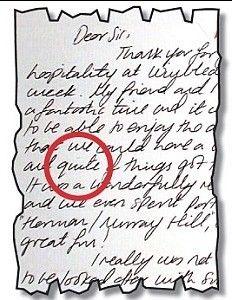 Dear Sir,
Thank you for
hospitality at
week. My friend and I
a fantastic time and it
to be able to enjoy the
that we could have a
and quite things got
It was a wonderfully
and we even spent
"Herman / Murray Hill",
great fun!
I really was not
to be looked after with